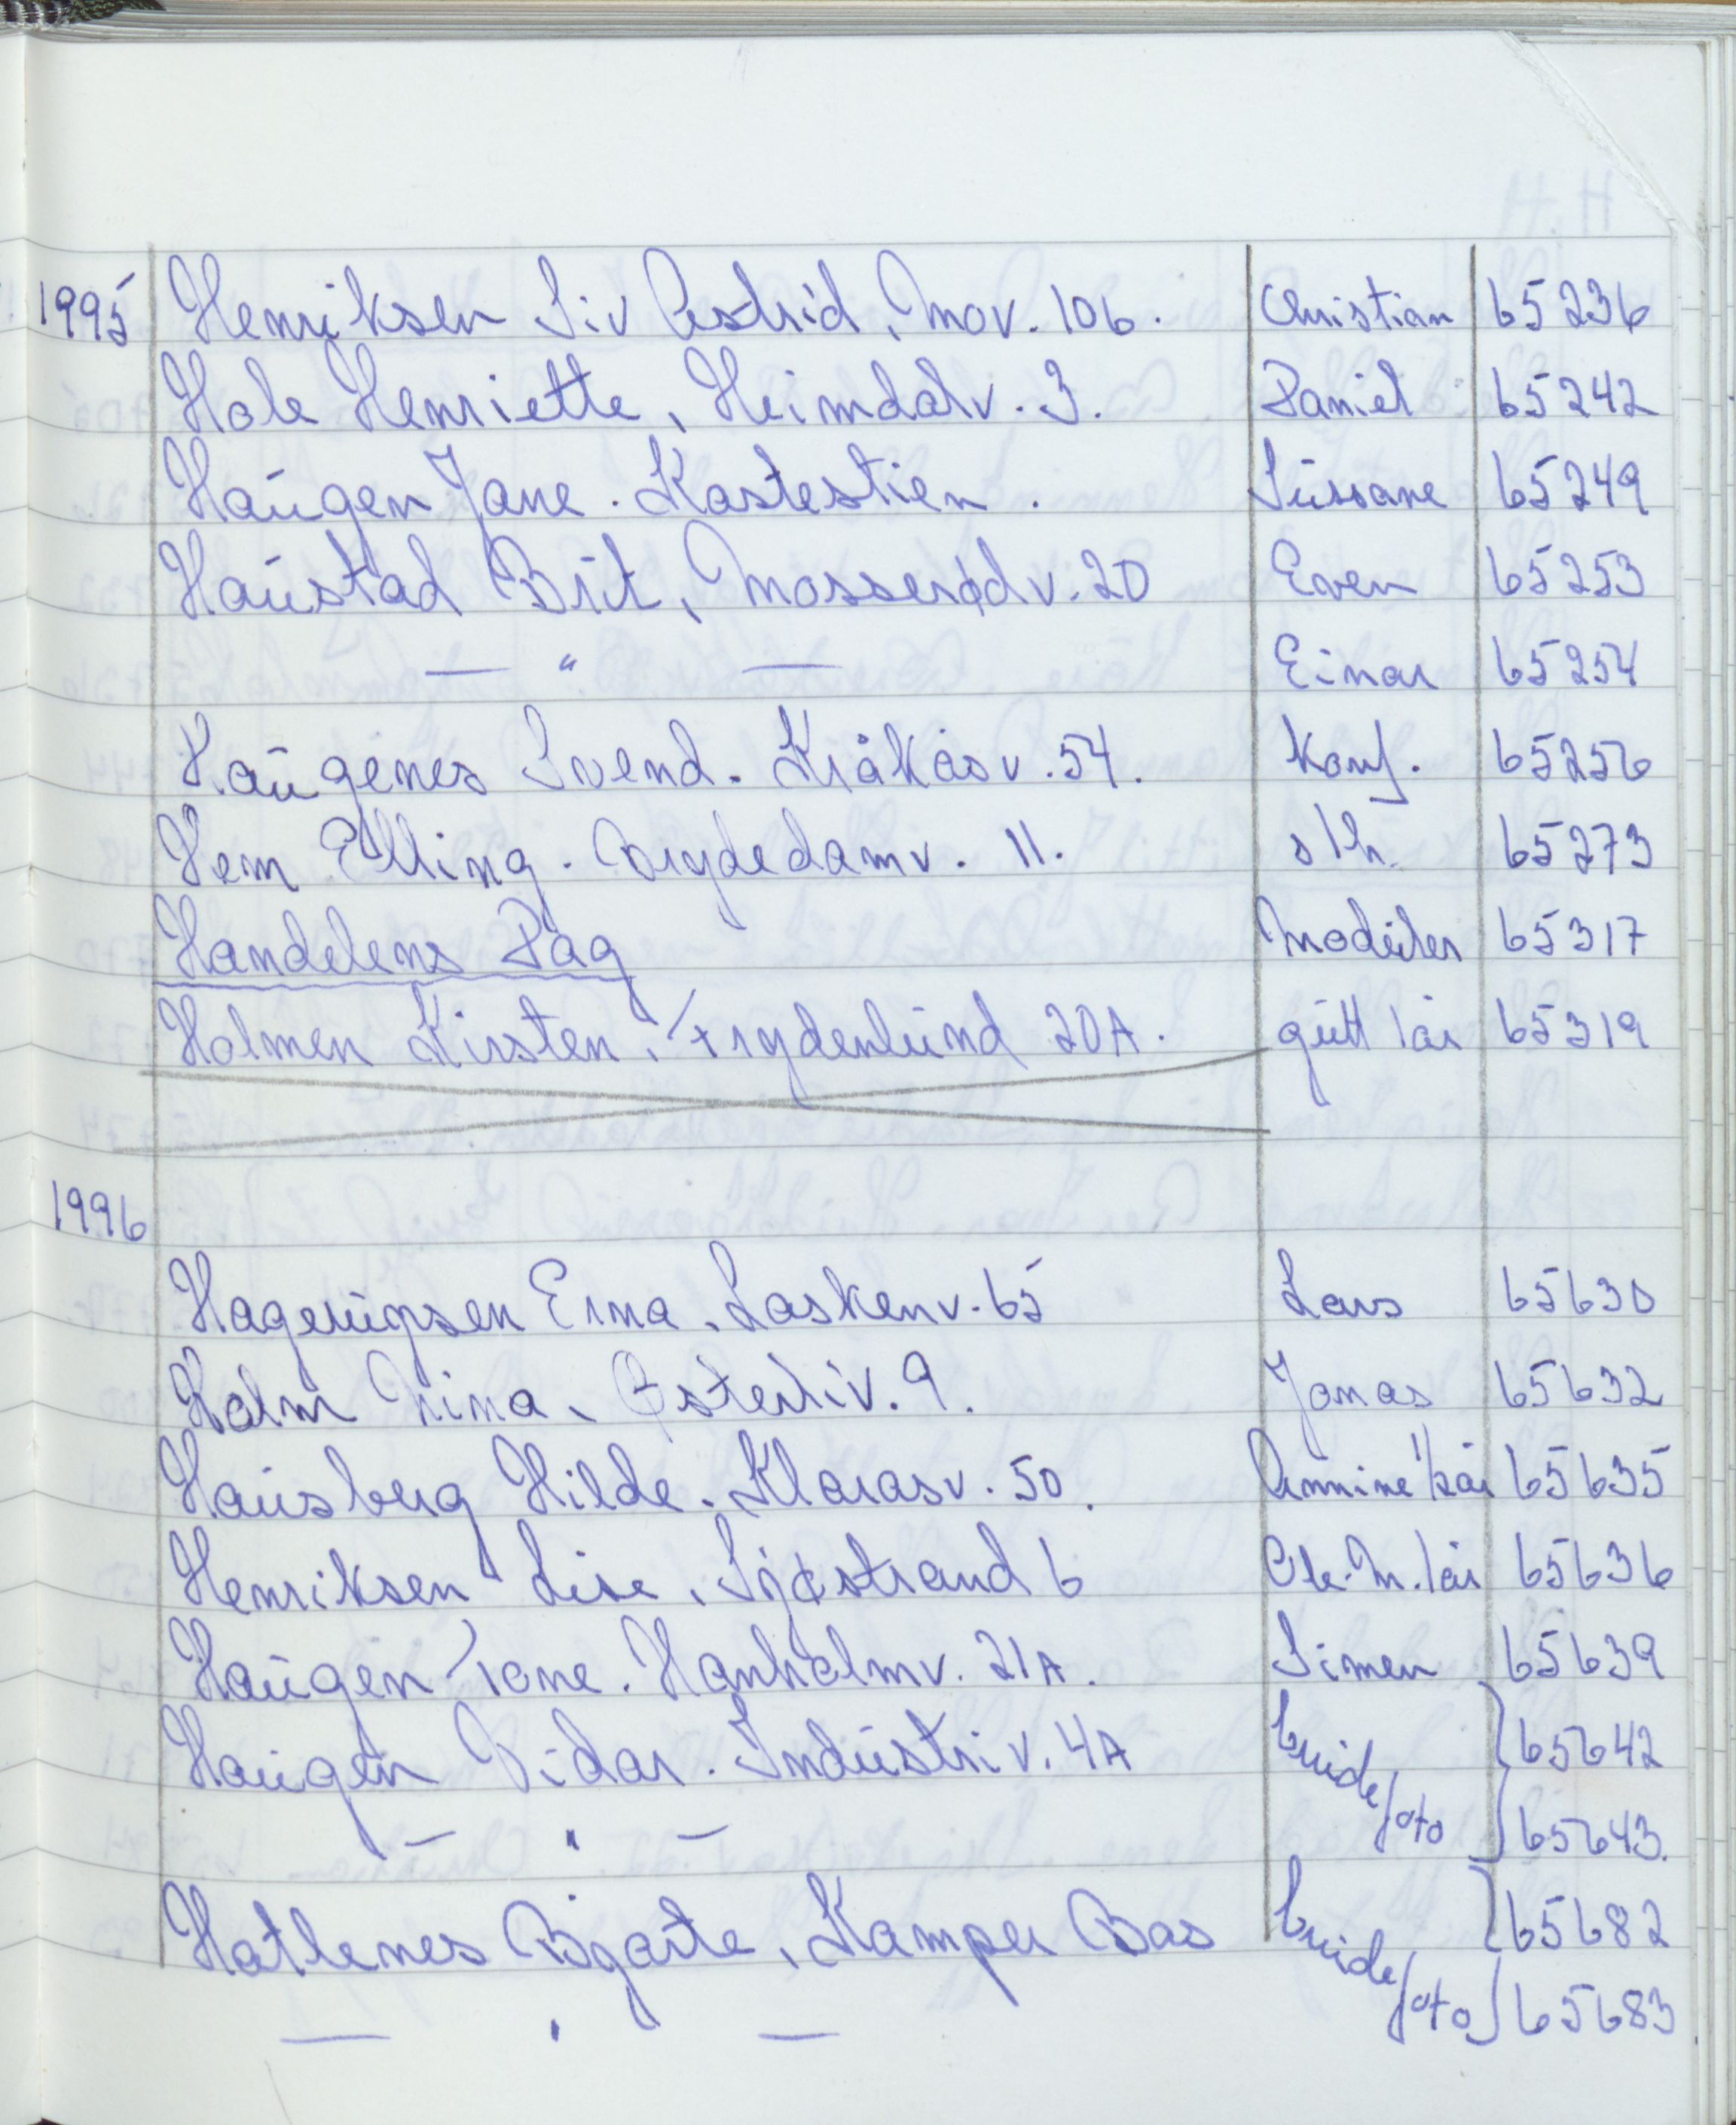 1995 Henriksen Siv Astrid, Mov. 106. Christian 65236
Hole Henriette, Heimdalv. 3. Daniel 65242
Haugen Jane. Kastestien. Sussane 65249
Haustad Brit, Mosserødv. 20 Even 65253
— " — Einar 65254
Haugenes Svend. Kråkåsv. 54. Konf. 65256
Hem Elling. Brydedamv. 11. s/h. 65273
Handelens Dag Moduler 65317
Holmen Kirsten, Frydenlund 20A. gutt 1år 65319
1996
Hagerupsen Erna, Laskenv. 65 Lars 65630
Holm Nina, Østerliv. 9. Jonas 65632
Hausberg Hilde. Klarasv. 50. Annine 1/2år 65635
Henriksen Lise, Sjøstrand 6 Ole.M. 1år 65636
Haugen Tone. Hanholmv. 21A. Simen 65639
Haugen Vidar. Industriv. 4A brude/foto 65642
— " — 65643.
Hatlenes Bjarte, Kamper Bas brude/foto 65682
— " — 65683